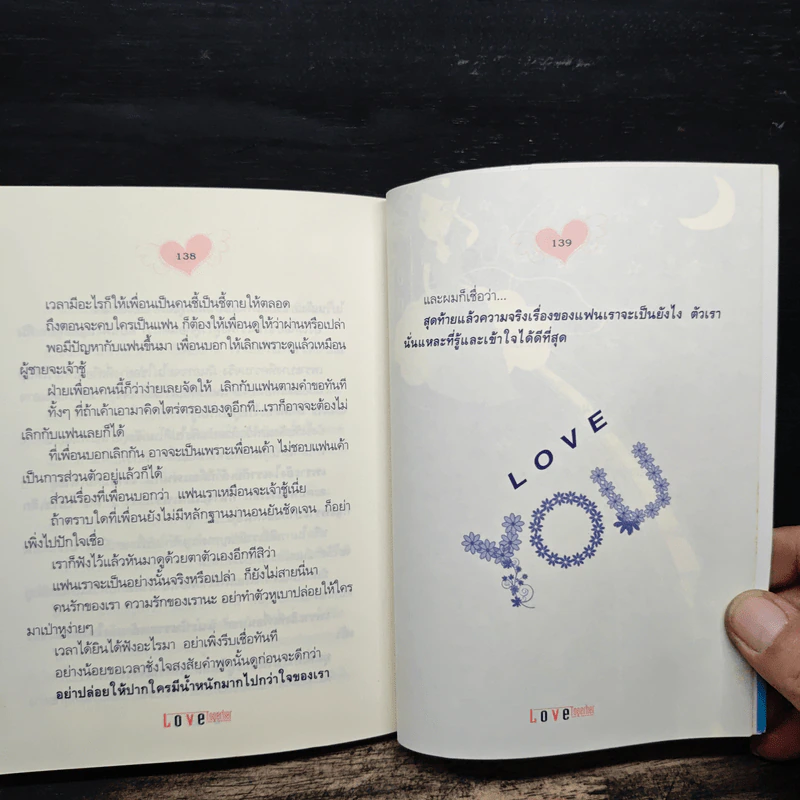 138
เวลามีอะไรก็ให้เพื่อนเป็นคนชี้เป็นชี้ตายให้ตลอด
ถึงตอนจะคบใครเป็นแฟน ก็ต้องให้เพื่อนดูให้ว่าผ่านหรือเปล่า
พอมีปัญหากับแฟนขึ้นมา เพื่อนบอกให้เลิกเพราะดูแล้วเหมือน
ผู้ชายจะเจ้าชู้
ฝ่ายเพื่อนคนนี้ก็ว่าง่ายเลยจัดให้ เลิกกับแฟนตามคำขอทันที
ทั้งๆ ที่ถ้าเค้าเอามาคิดไตร่ตรองเองดูอีกที...เราก็อาจจะต้องไม่
เลิกกับแฟนเลยก็ได้
ที่เพื่อนบอกเลิกกัน อาจจะเป็นเพราะเพื่อนเค้า ไม่ชอบแฟนเค้า
เป็นการส่วนตัวอยู่แล้วก็ได้
ส่วนเรื่องที่เพื่อนบอกว่า แฟนเราเหมือนจะเจ้าชู้เนี่ย
ถ้าตราบใดที่เพื่อนยังไม่มีหลักฐานมานอนยันชัดเจน ก็อย่า
เพิ่งไปปักใจเชื่อ
เราก็ฟังไว้แล้วหันมาดูด้วยตาตัวเองอีกทีสิว่า
แฟนเราจะเป็นอย่างนั้นจริงหรือเปล่า ก็ยังไม่สายนี่นา
คนรักของเรา ความรักของเรานะ อย่าทำตัวหูเบาปล่อยให้ใคร
มาเป่าหูง่ายๆ
เวลาได้ยินได้ฟังอะไรมา อย่าเพิ่งรีบเชื่อทันที
อย่างน้อยขอเวลาชั่งใจสงสัยคำพูดนั้นดูก่อนจะดีกว่า
อย่าปล่อยให้ปากใครมีน้ำหนักมากไปกว่าใจของเรา
Love Together
139
และผมก็เชื่อว่า...
สุดท้ายแล้วความจริงเรื่องของแฟนเราจะเป็นยังไง ตัวเรา
นั่นแหละที่รู้และเข้าใจได้ดีที่สุด
LOVE
YOU
Love Together